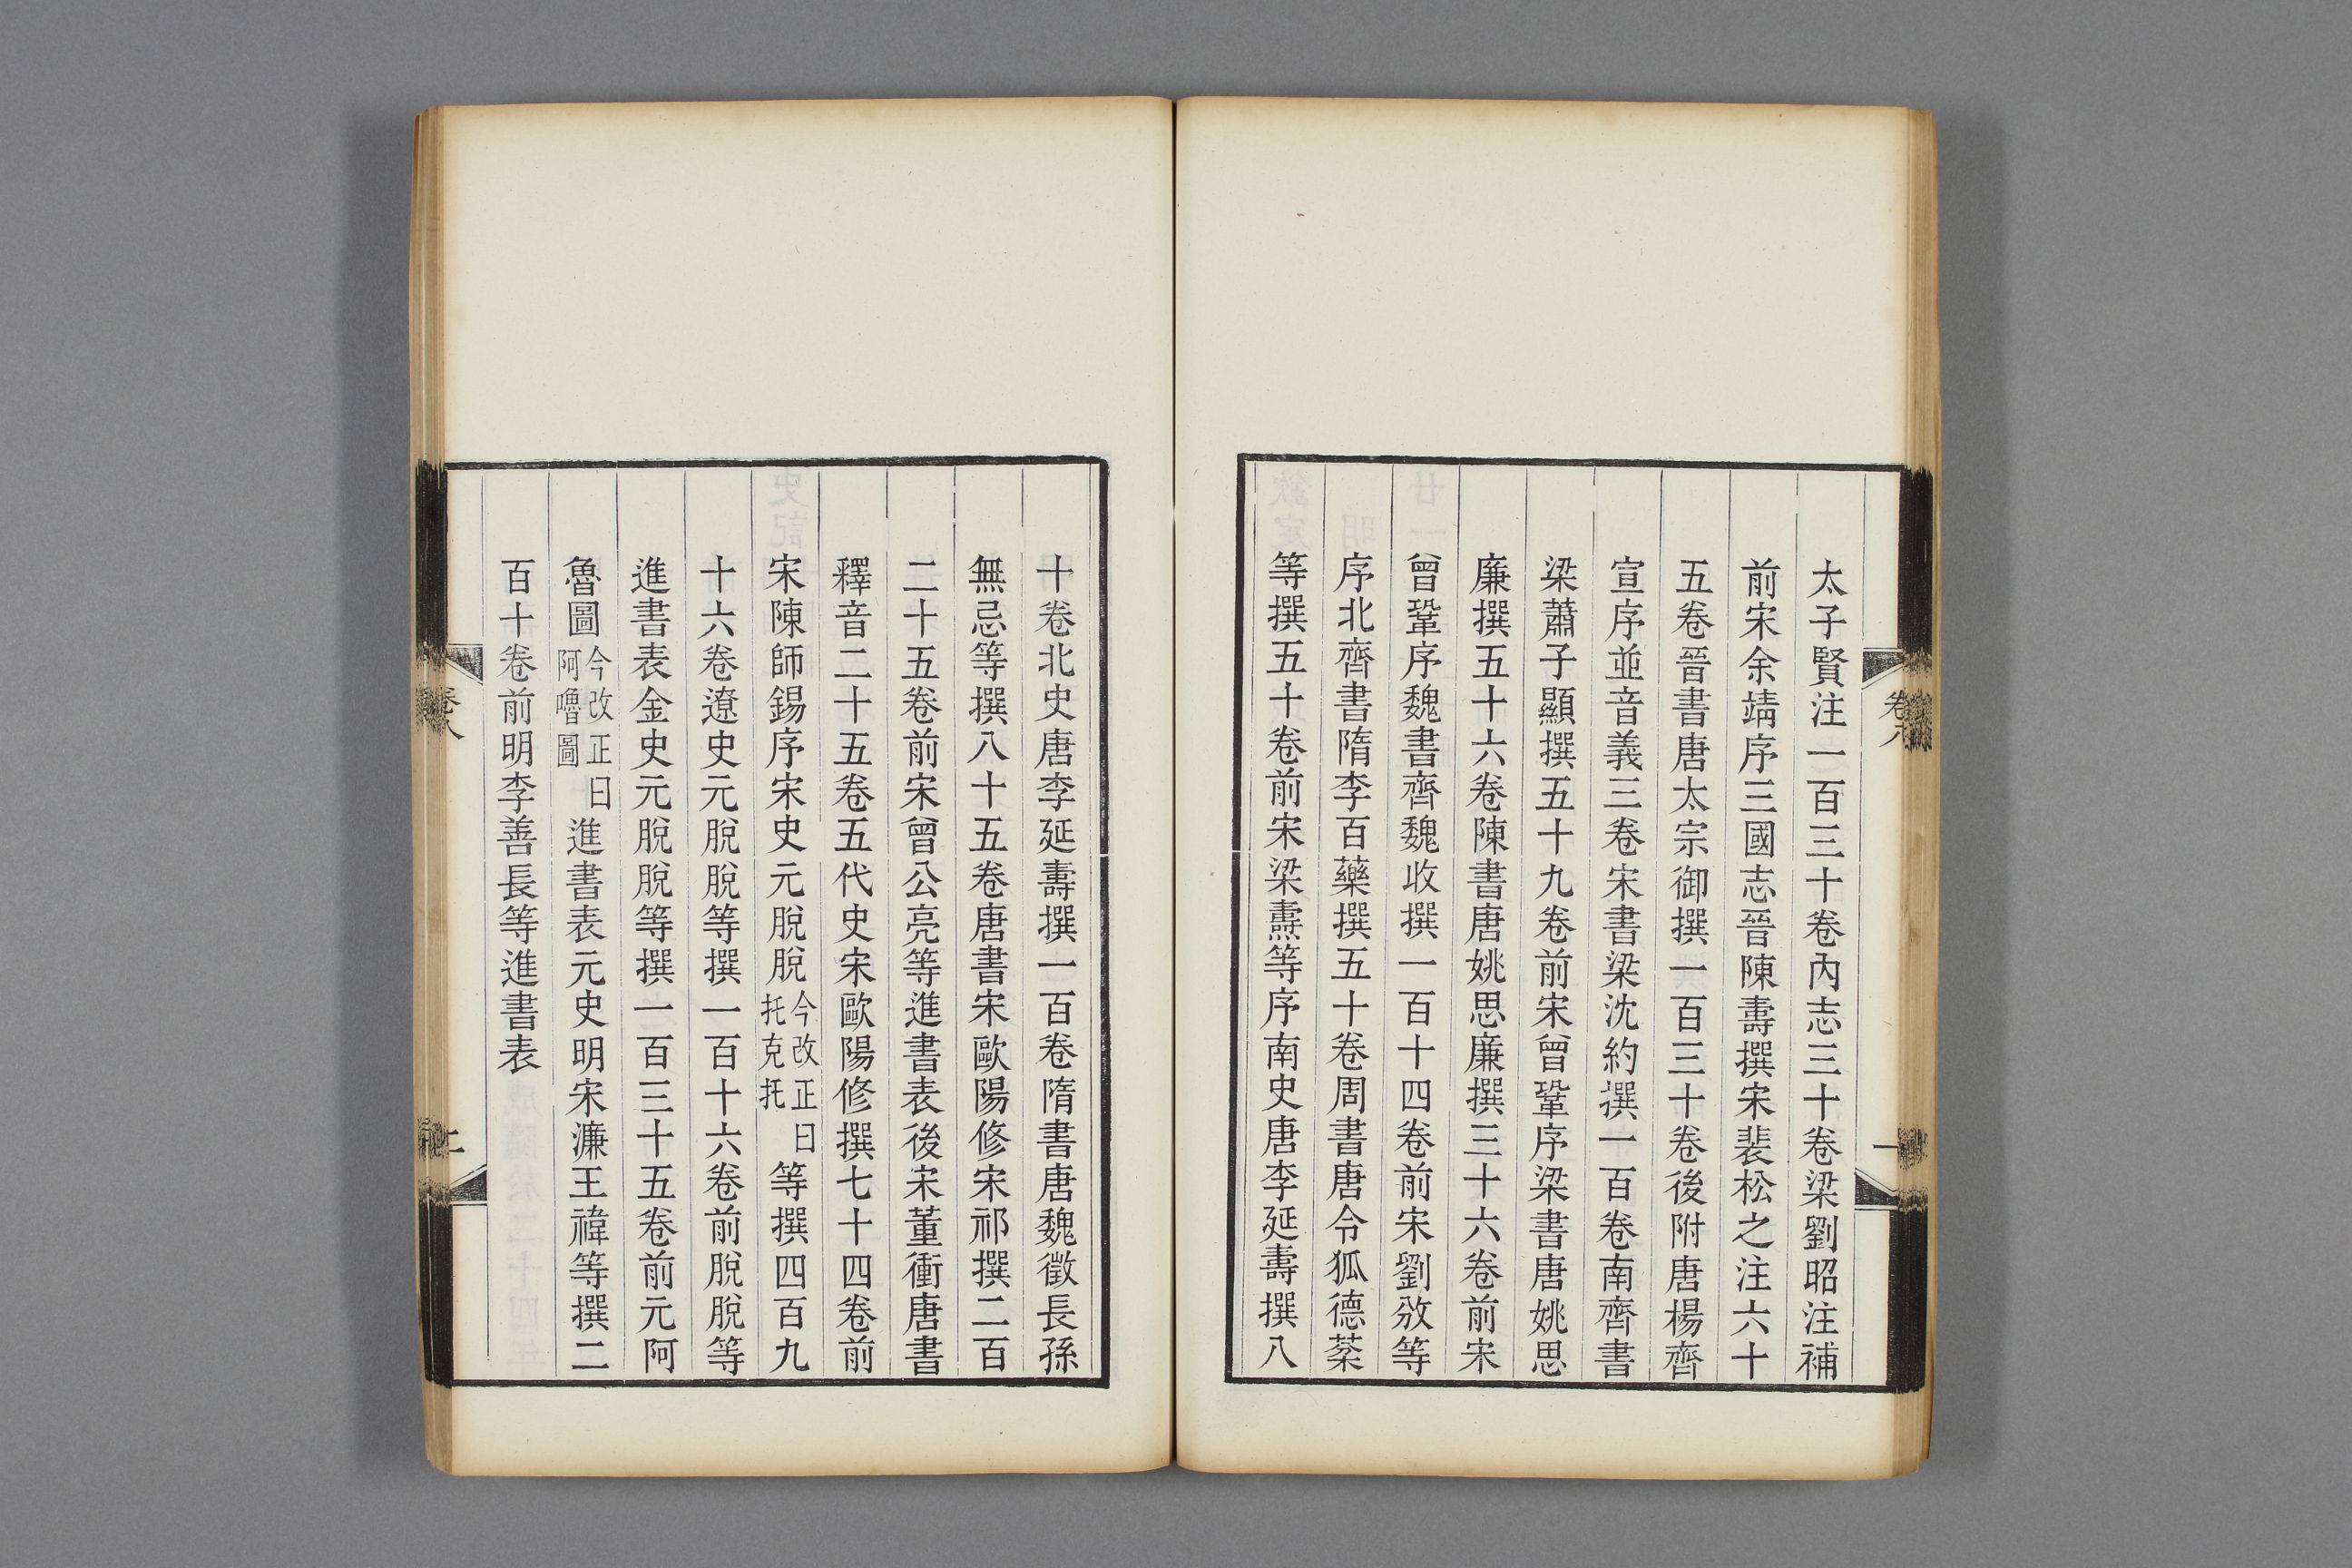 太子賢注一百三十卷內志三十卷梁劉昭注補
前宋余靖序三國志晉陳壽撰宋裴松之注六十
五卷晉書唐太宗御撰一百三十卷後附唐楊齊
宣序並音義三卷宋書梁沈約撰一百卷南齊書
梁蕭子顯撰五十九卷前宋曾鞏序梁書唐姚思
廉撰五十六卷陳書唐姚思廉撰三十六卷前宋
曾鞏序魏書齊魏收撰一百十四卷前宋劉攽等
序北齊書隋李百藥撰五十卷周書唐令狐德棻
等撰五十卷前宋梁燾等序南史唐李延壽撰八
卷八
一
十卷北史唐李延壽撰一百卷隋書唐魏徵長孫
無忌等撰八十五卷唐書宋歐陽修宋祁撰二百
二十五卷前宋曾公亮等進書表後宋董衝唐書
釋音二十五卷五代史宋歐陽修撰七十四卷前
宋陳師錫序宋史元脫脫今改正曰托克托等撰四百九
十六卷遼史元脫脫等撰一百十六卷前脫脫等
進書表金史元脫脫等撰一百三十五卷前元阿
魯圖今改正曰阿嚕圖進書表元史明宋濂王褘等撰二
百十卷前明李善長等進書表
卷八